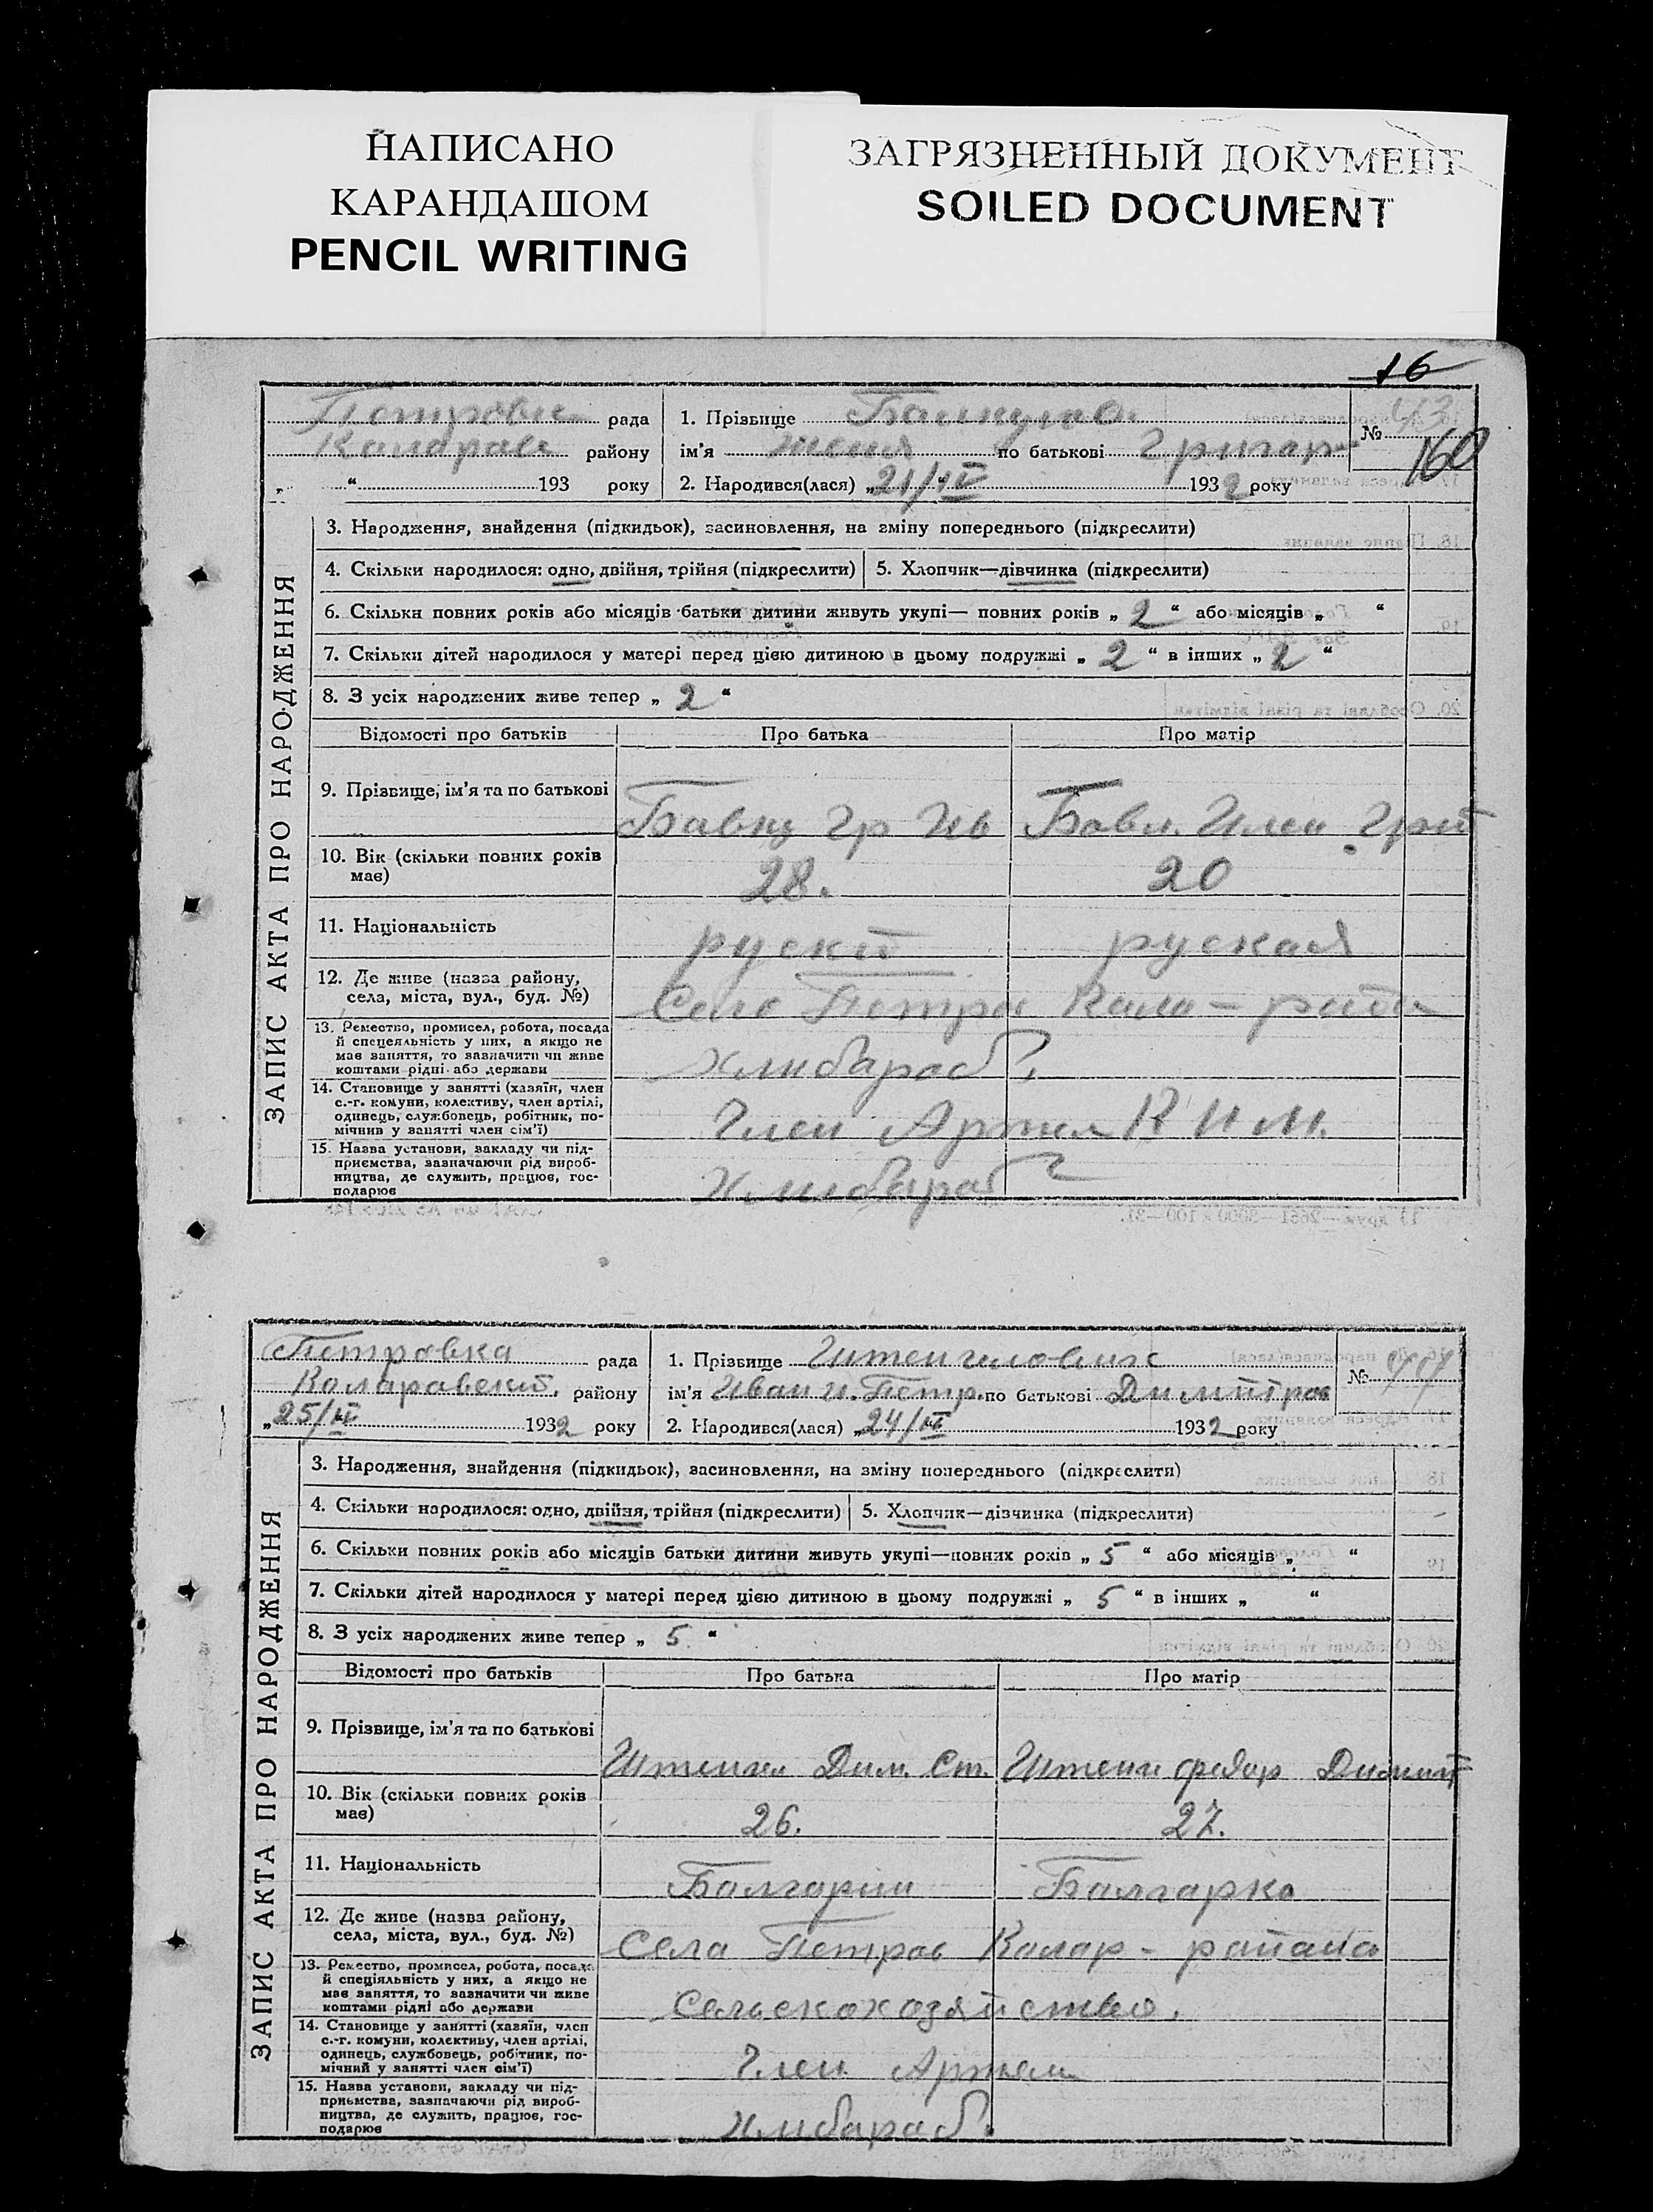 НАПИСАНО
КАРАНДАШОМ
PENCIL WRITING
ЗАГРЯЗНЕННЫЙ ДОКУМЕНТ
SOILED DOCUMENT
16
ЗАПИС АКТА ПРО НАРОДЖЕННЯ
Петровки рада
района району
„ “ 193 року
1. Прізвище
ім'я Женя по батькові Григор
2. Народився(лася) „21/IV 1932 року
№ 43
160
3. Народження, знайдення (підкидьок), засиновлення, на зміну попереднього (підкреслити)
4. Скільки народилося: одно, двійня, трійня (підкреслити) 5. Хлопчик—дівчинка (підкреслити)
6. Скільки повних років або місяців батьки дитини живуть укупі— повних років „ 2 “ або місяців „ “
7. Скільки дітей народилося у матері перед цією дитиною в цьому подружжі „ 2 “ в інших „ 2 “
8. З усіх народжених живе тепер „ 2 “
Відомості про батьків Про батька Про матір
9. Прізвище, ім'я та по батькові Гр Ив
10. Вік (скільки повних років має) 28. 20
11. Національність руский руская
12. Де живе (назва району, села, міста, вул., буд. №) Село Петро Кола - района
13. Ремество, промисел, робота, посада
й спецеяльність у них, а якщо не
має заняття, то зазначити чи живе
коштами рідні або держави Хлибароб
14. Становище у занятті (хазяїн, член
с.-г. комуни, колективу, член артілі,
одинець, службовець, робітник, по-
мічнив у занятті член сім'ї) Член Артел КИМ.
15. Назва установи, закладу чи під-
приємства, зазначаючи рід вироб-
ництва, де служить, працює, гос-
подарює Хлибароб
ЗАПИС АКТА ПРО НАРОДЖЕННЯ
Петровка рада
Коларавский району
„25/III 1932 року
1. Прізвище
ім'я Иван и Петр по батькові Димитров
2. Народився(лася) „24/III 1932 року
№
3. Народження, знайдення (підкидьок), засиновлення, на зміну попереднього (підкреслити)
4. Скільки народилося: одно, двійня, трійня (підкреслити) 5. Хлопчик—дівчинка (підкреслити)
6. Скільки повних років або місяців батьки дитини живуть укупі—повних років „ 5 “ або місяців „ “
7. Скільки дітей народилося у матері перед цією дитиною в цьому подружжі „ 5 “ в інших „ “
8. З усіх народжених живе тепер „ 5 “
Відомості про батьків Про батька Про матір
9. Прізвище, ім'я та по батькові Дим. Ст.
10. Вік (скільки повних років має) 26. 27.
11. Національність Балгарин Балгарка
12. Де живе (назва району, села, міста, вул., буд. №) Села Петров Колар - района
13. Ремество, промисел, робота, посада
й спеціяльність у них, а якщо не
має заняття, то зазначити чи живе
коштами рідні або держави Сельскохозяйство.
14. Становище у занятті (хазяїн, член
с.-г. комуни, колективу, член артілі,
одинець, службовець, робітник, по-
мічний у занятті член сім'ї) Член Артели
15. Назва установи, закладу чи під-
приємства, зазначаючи рід вироб-
ництва, де служить, працює, гос-
подарює Хлибароб.